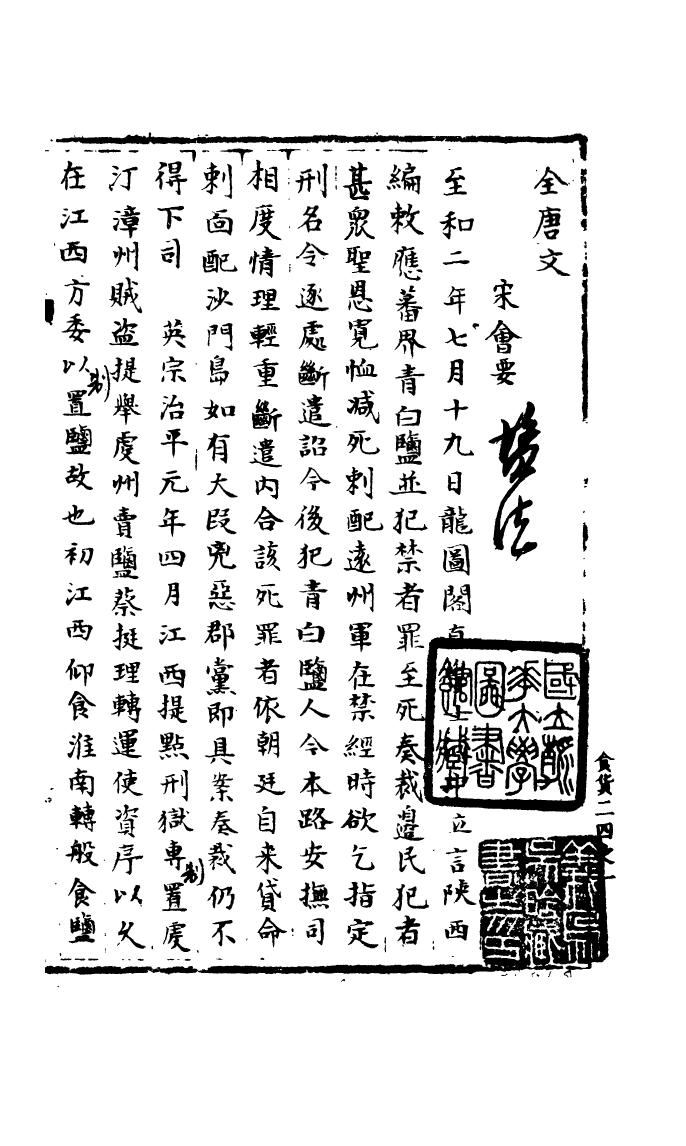 全唐文
宋會要
鹽法
至和二年七月十九日龍圖閣直學士 言陝西
編敕應蕃界青白鹽並犯禁者罪至死奏裁邊民犯者
甚衆聖恩寬恤減死刺配遠州軍在禁經時欲乞指定
刑名令逐處斷遣詔今後犯青白鹽人令本路安撫司
相度情理輕重斷遣内合該死罪者依朝廷自来貸命
刺面配沙門島如有大叚兇惡郡黨即具案奏裁仍不
得下司 英宗治平元年四月江西提點刑獄專制置虔
汀漳州賊盗提舉虔州賣鹽蔡挺理轉運使資序以久
在江西方委以制置鹽故也初江西仰食淮南轉般食鹽
國立 大學圖書
食貨二四之一